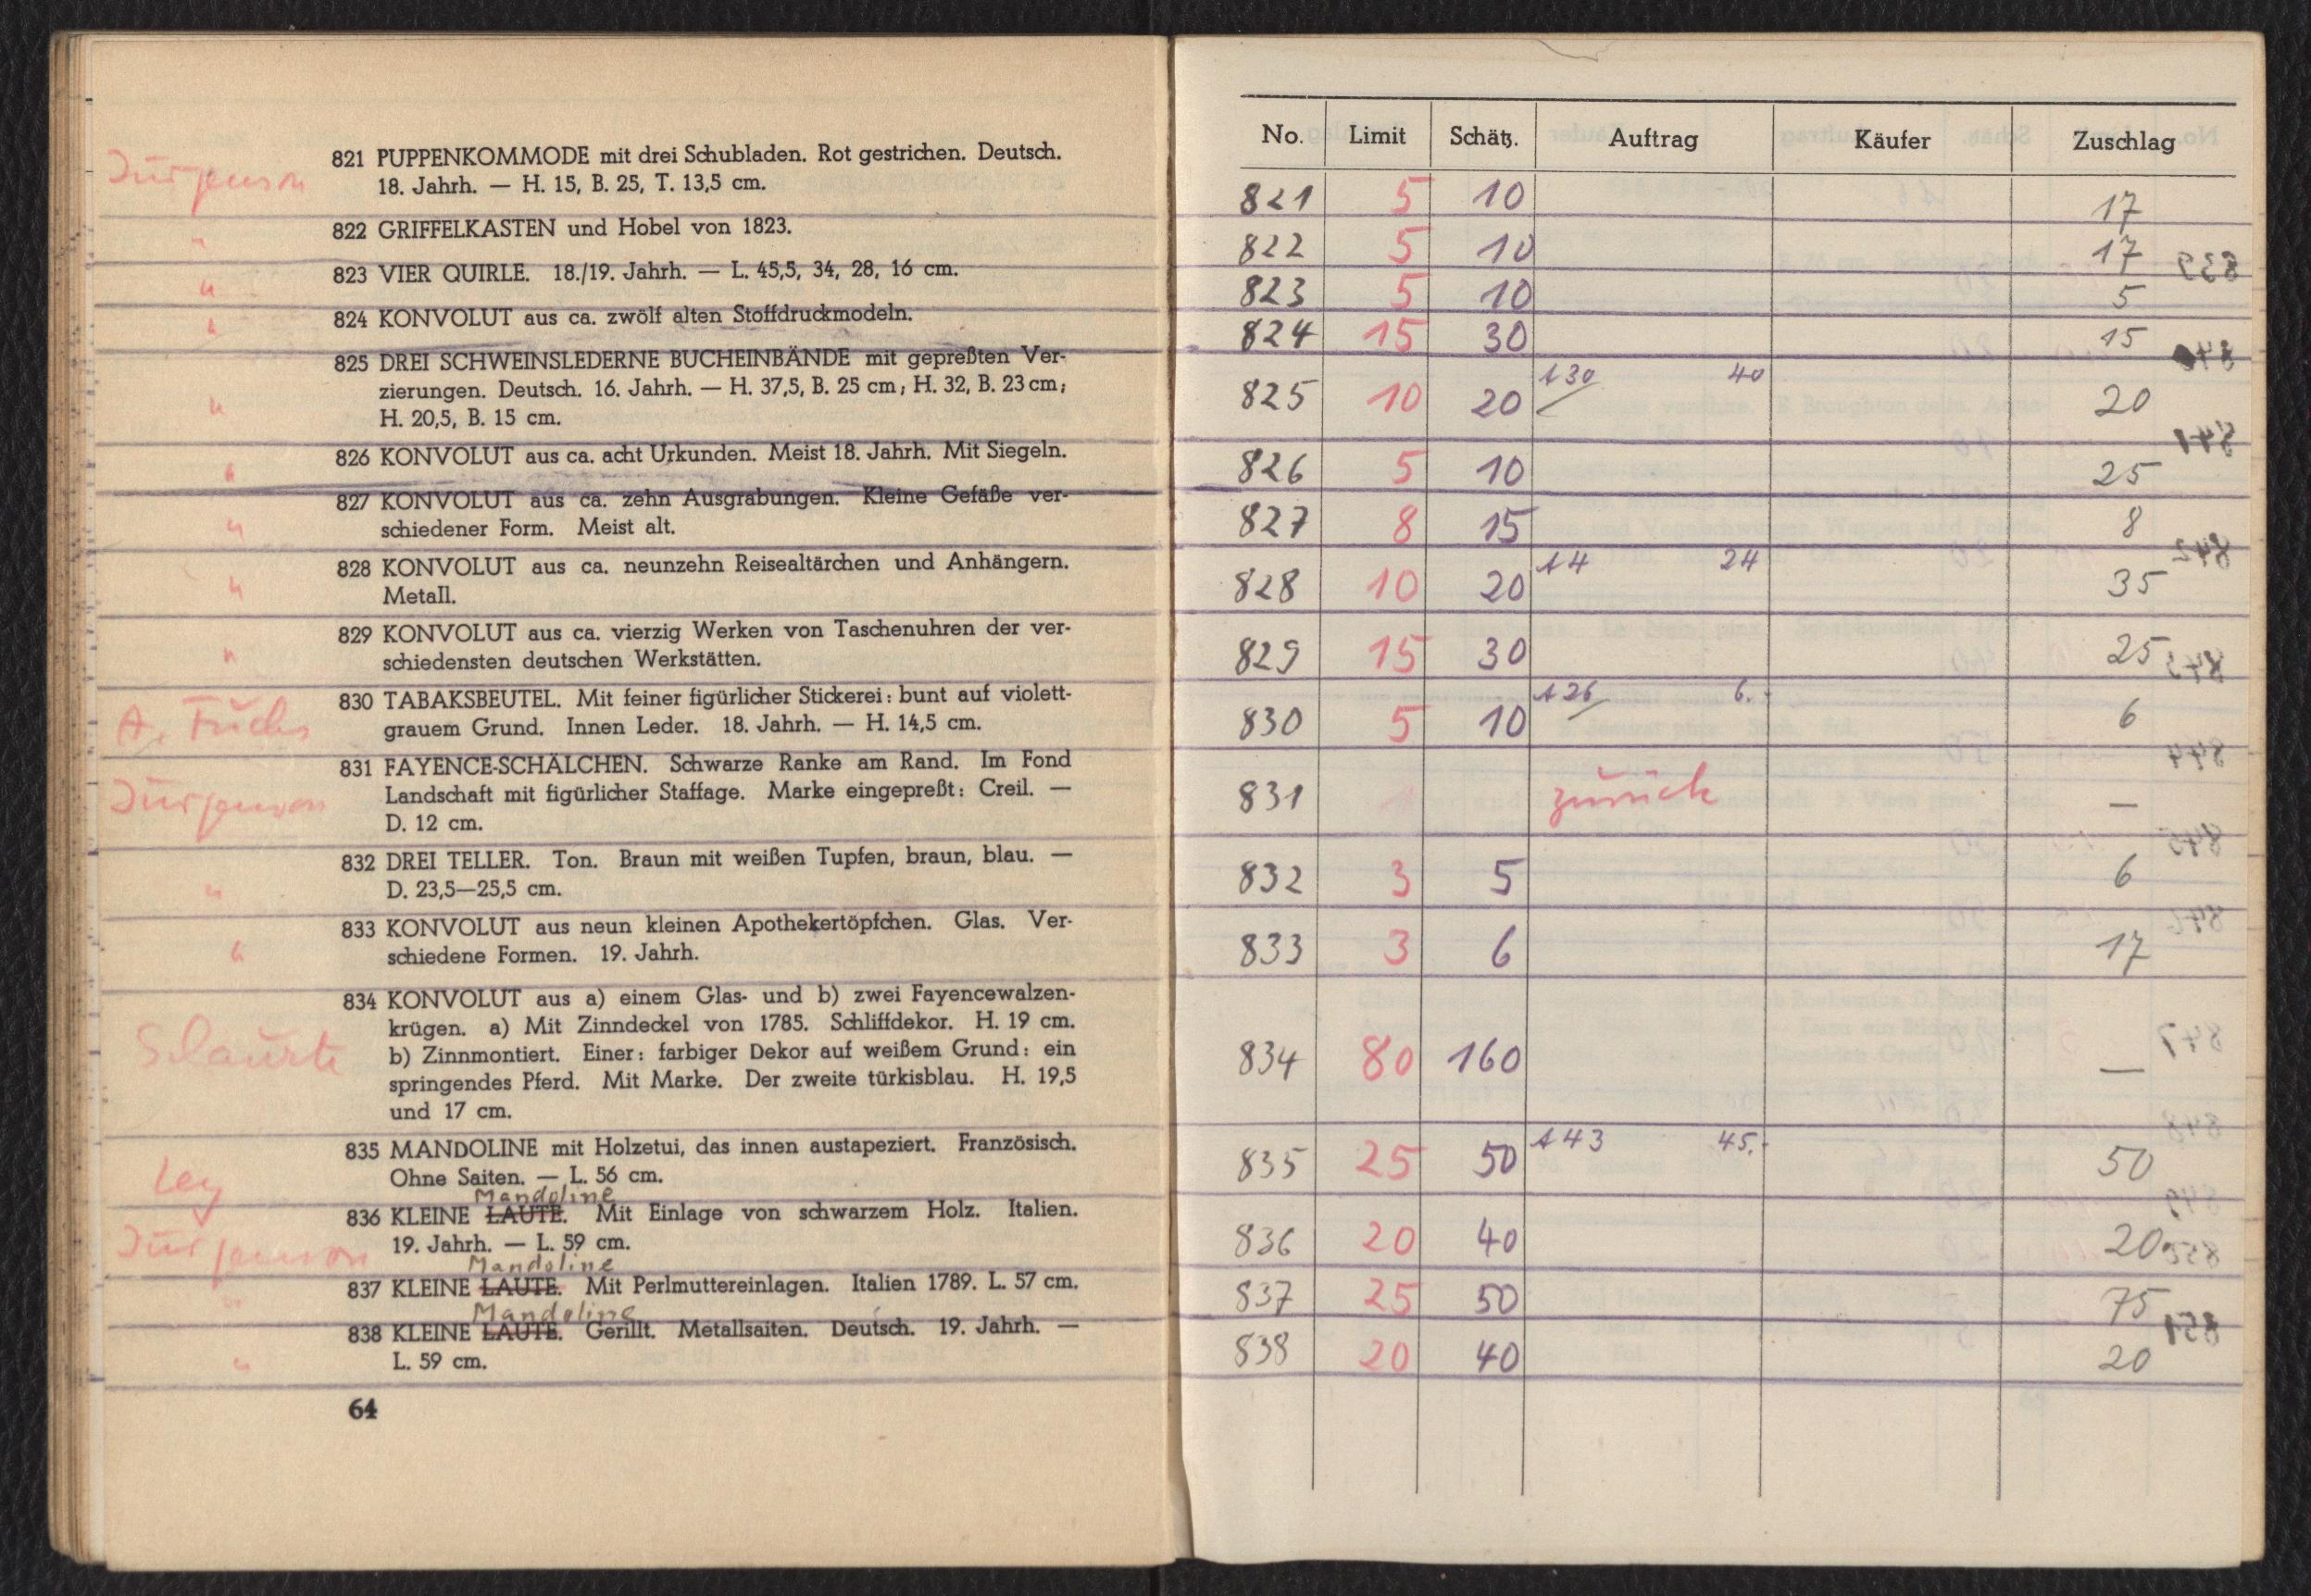 Jürgenson
821 PUPPENKOMMODE mit drei Schubladen. Rot gestrichen. Deutsch.
18. Jahrh. — H. 15, B. 25, T. 13,5 cm.
" 822 GRIFFELKASTEN und Hobel von 1823.
" 823 VIER QUIRLE. 18./19. Jahrh. — L. 45,5, 34, 28, 16 cm.
" 824 KONVOLUT aus ca. zwölf alten Stoffdruckmodeln.
825 DREI SCHWEINSLEDERNE BUCHEINBÄNDE mit gepreßten Ver-
zierungen. Deutsch. 16. Jahrh. — H. 37,5, B. 25 cm; H. 32, B. 23 cm;
" H. 20,5, B. 15 cm.
" 826 KONVOLUT aus ca. acht Urkunden. Meist 18. Jahrh. Mit Siegeln.
827 KONVOLUT aus ca. zehn Ausgrabungen. Kleine Gefäße ver-
" schiedener Form. Meist alt.
828 KONVOLUT aus ca. neunzehn Reisealtärchen und Anhängern.
" Metall.
829 KONVOLUT aus ca. vierzig Werken von Taschenuhren der ver-
" schiedensten deutschen Werkstätten.
830 TABAKSBEUTEL. Mit feiner figürlicher Stickerei: bunt auf violett-
A. Fuchs grauem Grund. Innen Leder. 18. Jahrh. — H. 14,5 cm.
831 FAYENCE-SCHÄLCHEN. Schwarze Ranke am Rand. Im Fond
Jürgenson Landschaft mit figürlicher Staffage. Marke eingepreßt: Creil. —
D. 12 cm.
832 DREI TELLER. Ton. Braun mit weißen Tupfen, braun, blau. —
" D. 23,5—25,5 cm.
833 KONVOLUT aus neun kleinen Apothekertöpfchen. Glas. Ver-
" schiedene Formen. 19. Jahrh.
834 KONVOLUT aus a) einem Glas- und b) zwei Fayencewalzen-
krügen. a) Mit Zinndeckel von 1785. Schliffdekor. H. 19 cm.
b) Zinnmontiert. Einer: farbiger Dekor auf weißem Grund: ein
springendes Pferd. Mit Marke. Der zweite türkisblau. H. 19,5
und 17 cm.
835 MANDOLINE mit Holzetui, das innen austapeziert. Französisch.
Ley Ohne Saiten. — L. 56 cm.
Mandoline
836 KLEINE LAUTE. Mit Einlage von schwarzem Holz. Italien.
Jürgenson 19. Jahrh. — L. 59 cm.
Mandoline
" 837 KLEINE LAUTE. Mit Perlmuttereinlagen. Italien 1789. L. 57 cm.
Mandoline
838 KLEINE LAUTE. Gerillt. Metallsaiten. Deutsch. 19. Jahrh. —
" L. 59 cm.
64
No. Limit Schätz. Auftrag Käufer Zuschlag
821 5 10 17
822 5 10 17
823 5 10 5
824 15 30 15
825 10 20 130 40 20
826 5 10 25
827 8 15 8
828 10 20 14 24 35
829 15 30 25
830 5 10 126 6.- 6
831 zurück —
832 3 5 6
833 3 6 17
834 80 160 —
835 25 50 143 45.- 50
836 20 40 20
837 25 50 75
838 20 40 20